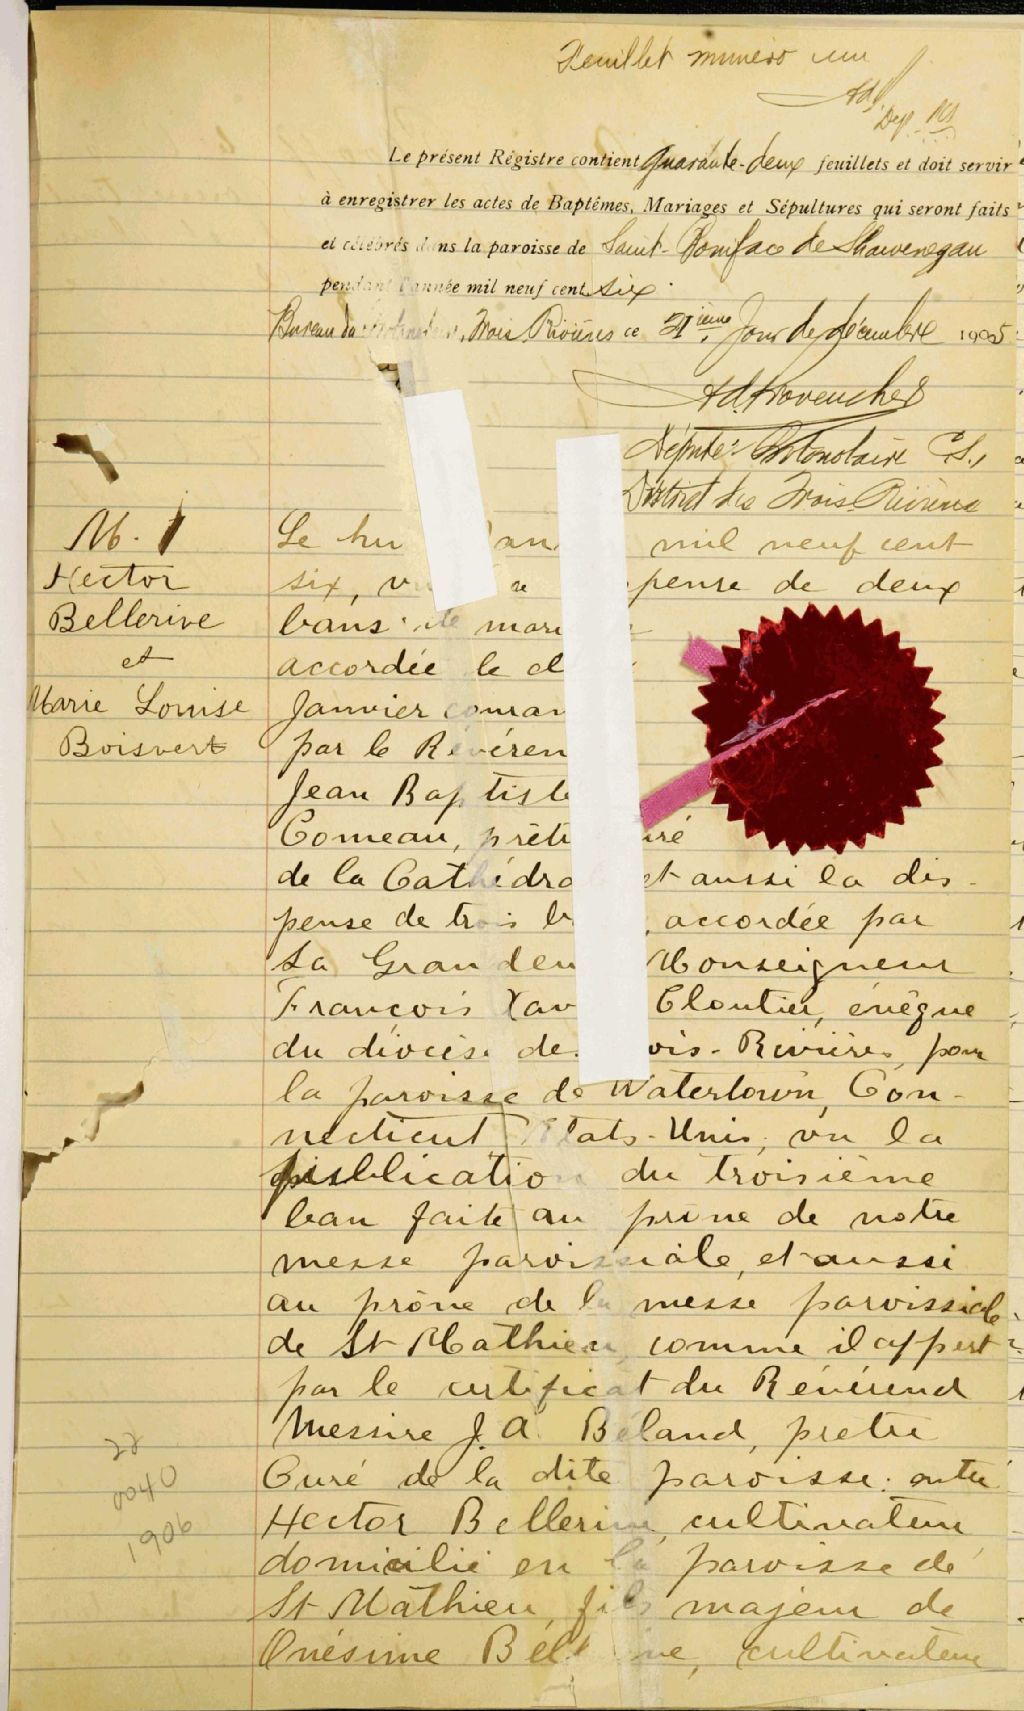 Feuillet numéro un
Ad P
Dep. P.C.S
Le présent Régistre contient quarante-deux feuillets et doit servir
à enregistrer les actes de Baptêmes, Mariages et Sépultures qui seront faits
et célébrés dans la paroisse de Saint-Boniface de Shawenegan
pendant l'année mil neuf cent six.
Bureau du Protonotaire, Trois Rivières ce 21ième Jour de décembre 1905
Ad. Provencher
Député Protonotaire C.S.,
District des Trois Rivières
M. 1
Hector
Bellerive
et
Marie Louise
Boisvert
Le hu an mil neuf cent
six, v pense de deux
bans de mari
accordée le d
Janvier couran
par le Révéren
Jean Baptiste
Comeau, prêtr uré
de la Cathédra et aussi la dis-
pense de trois b , accordée par
Sa Grandeu Monseigneur
François Xav Cloutier, évêque
du diocèse de ois-Rivières, pour
la paroisse de Watertown, Con-
necticut Etats-Unis, vu la
publication du troisième
ban faite au prône de notre
messe paroissiale, et aussi
au prône de la messe paroissiale
de St Mathieu, comme il appert
par le certificat du Révérend
Messire J. A. Béland, prêtre
Curé de la dite paroisse: entre
Hector Bellerive, cultivateur
domicilié en la paroisse de
St Mathieu, fils majeur de
Onésime Bell ive, cultivateur
22
0040
1906